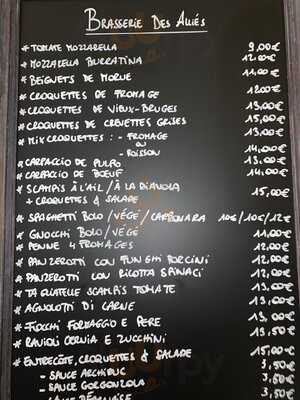 BRASSERIE DES ALLIÉS
* TOMATE MOZZARELLA 9,00€
* MOZZARELLA BURRATINA 12.00€
* BEIGNETS DE MORUE 11,00€
* CROQUETTES DE FROMAGE 12.00€
* CROQUETTES DE VIEUX-BRUGES 13,00€
* CROQUETTES DE CREVETTES GRISES 15,00€
* MIX CROQUETTES : - FROMAGE 13,00€
OU
- POISSON 14,00€
* CARPACCIO DE PULPO 13.00€
* CARPACCIO DE BŒUF 14,00€
* SCAMPIS À L'AIL / À LA DIAVOLA
+ CROQUETTES & SALADE 15,00€
* SPAGHETTI BOLO / VÉGÉ / CARBONARA 10€/10€/12€
* GNOCCHI BOLO / VÉGÉ 11,00€
* PENNE 4 FROMAGES 12,00€
* PANZEROTTI CON FUNGHI PORCINI 12,00€
* PANZEROTTI CON RICOTTA SPINACI 12,00€
* TAGLIATELLE SCAMPIS TOMATE 13,00€
* AGNOLOTTI DI CARNE 13,00€
* FIOCCHI FORMAGGIO E PERE 13,50€
* RAVIOLI CERNIA E ZUCCHINI 13,50€
* ENTRECÔTE, CROQUETTES & SALADE 15,00€
- SAUCE ARCHIDUC 3,50€
- SAUCE GORGONZOLA 3,50€
- SAUCE BÉARNAISE 3,50€